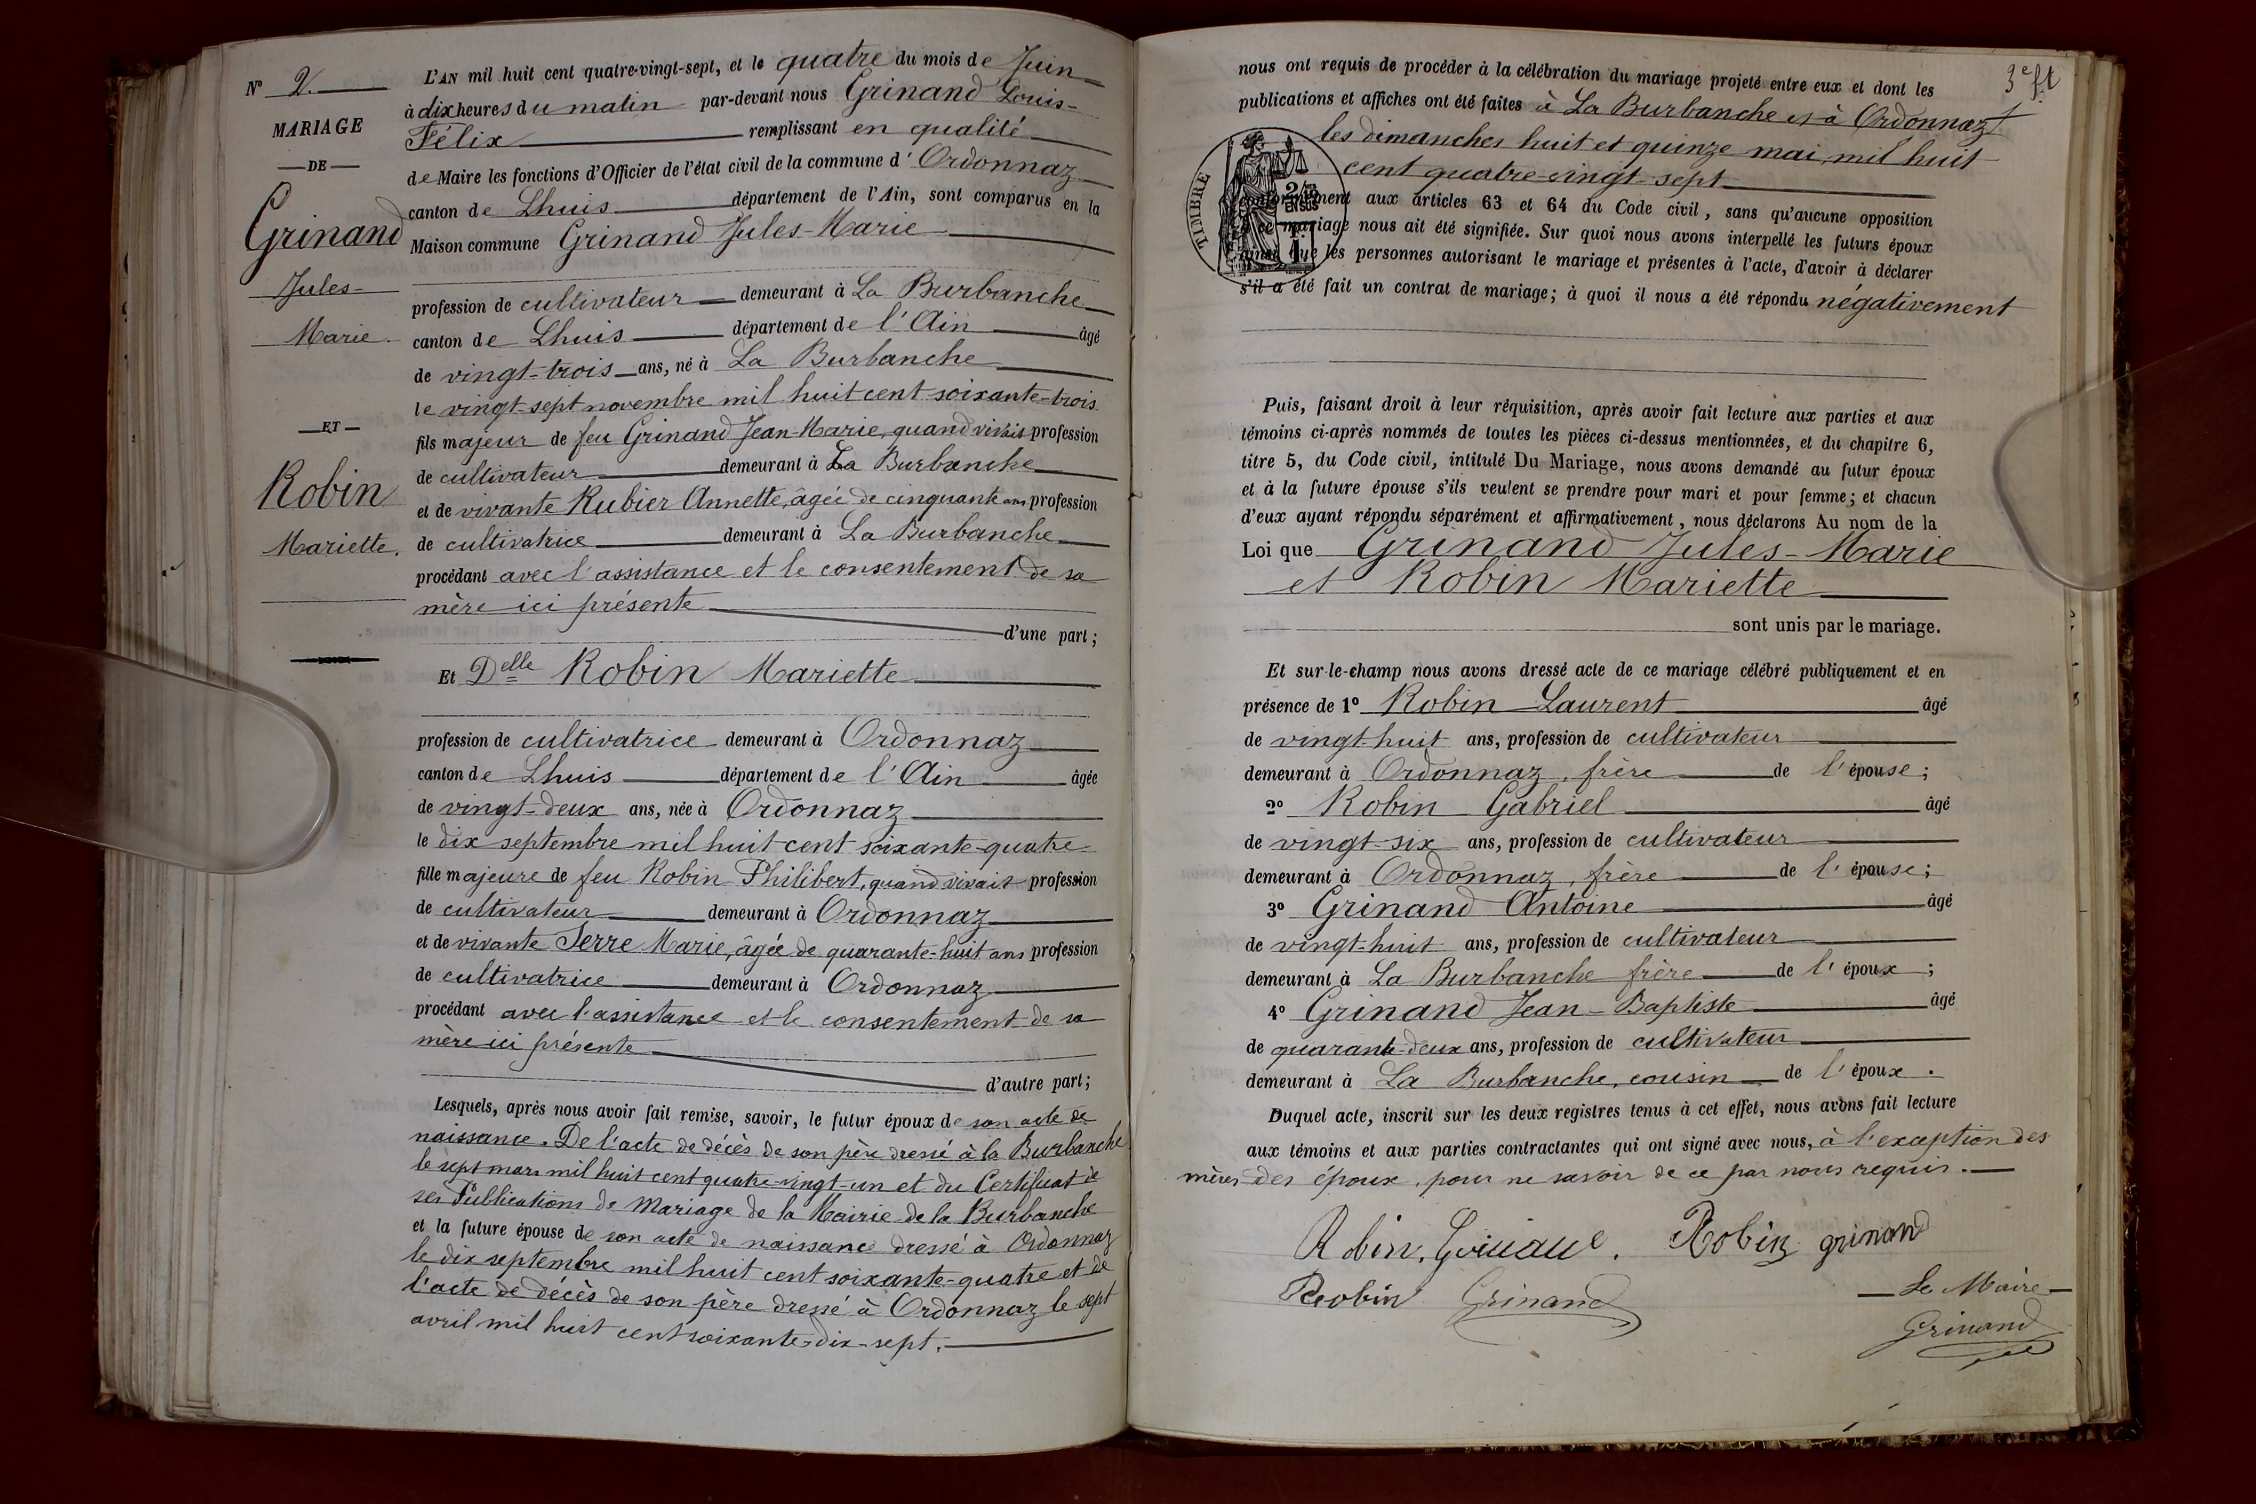 N° 2.
MARIAGE
DE
Grinand
Jules-
Marie.
ET
Robin
Mariette.
L'AN mil huit cent quatre-vingt-sept, et le quatre du mois de Juin
à dix heures du matin par-devant nous Grinand Louis-
Félix remplissant en qualité
de Maire les fonctions d'Officier de l'état civil de la commune d'Ordonnaz
canton de Lhuis département de l'Ain, sont comparus en la
Maison commune Grinand Jules-Marie
profession de cultivateur demeurant à La Burbanche
canton de Lhuis département de l'Ain âgé
de vingt-trois ans, né à La Burbanche
le vingt-sept novembre mil huit cent soixante-trois
fils majeur de feu Grinand Jean-Marie, quand vivait profession
de cultivateur demeurant à La Burbanche
et de vivante Rubier Annette, âgée de cinquante ans profession
de cultivatrice demeurant à La Burbanche
procédant avec l'assistance et le consentement de sa
mère ici présente
d'une part;
Et Delle Robin Mariette
profession de cultivatrice demeurant à Ordonnaz
canton de Lhuis département de l'Ain âgée
de vingt-deux ans, née à Ordonnaz
le dix septembre mil huit cent soixante-quatre
fille majeure de feu Robin Philibert, quand vivait profession
de cultivateur demeurant à Ordonnaz
et de vivante Serre Marie, âgée de quarante-huit ans profession
de cultivatrice demeurant à Ordonnaz
procédant avec l'assistance et le consentement de sa
mère ici présente
d'autre part;
Lesquels, après nous avoir fait remise, savoir, le futur époux de son acte de
naissance. De l'acte de décès de son père dressé à la Burbanche
le sept mars mil huit cent quatre-vingt-un et du Certificat de
ses Publications de Mariage de la Mairie de la Burbanche
et la future épouse de son acte de naissance dressé à Ordonnaz
le dix septembre mil huit cent soixante-quatre et de
l'acte de décès de son père dressé à Ordonnaz le sept
avril mil huit cent soixante-dix-sept.
3e ft
nous ont requis de procéder à la célébration du mariage projeté entre eux et dont les
publications et affiches ont été faites à La Burbanche et à Ordonnaz
les dimanches huit et quinze mai mil huit
cent quatre-vingt-sept
TIMBRE
2/10
EN SUS
conformément aux articles 63 et 64 du Code civil, sans qu'aucune opposition
à ce mariage nous ait été signifiée. Sur quoi nous avons interpellé les futurs époux
ainsi que les personnes autorisant le mariage et présentes à l'acte, d'avoir à déclarer
s'il a été fait un contrat de mariage; à quoi il nous a été répondu négativement
Puis, faisant droit à leur réquisition, après avoir fait lecture aux parties et aux
témoins ci-après nommés de toutes les pièces ci-dessus mentionnées, et du chapitre 6,
titre 5, du Code civil, intitulé Du Mariage, nous avons demandé au futur époux
et à la future épouse s'ils veulent se prendre pour mari et pour femme; et chacun
d'eux ayant répondu séparément et affirmativement, nous déclarons Au nom de la
Loi que Grinand Jules-Marie
et Robin Mariette
sont unis par le mariage.
Et sur-le-champ nous avons dressé acte de ce mariage célébré publiquement et en
présence de 1° Robin Laurent âgé
de vingt-huit ans, profession de cultivateur
demeurant à Ordonnaz, frère de l'épouse;
2° Robin Gabriel âgé
de vingt-six ans, profession de cultivateur
demeurant à Ordonnaz, frère de l'épouse;
3° Grinand Antoine âgé
de vingt-huit ans, profession de cultivateur
demeurant à La Burbanche frère de l'époux;
4° Grinand Jean-Baptiste âgé
de quarante-deux ans, profession de cultivateur
demeurant à La Burbanche, cousin de l'époux.
Duquel acte, inscrit sur les deux registres tenus à cet effet, nous avons fait lecture
aux témoins et aux parties contractantes qui ont signé avec nous, à l'exception des
mères des époux, pour ne savoir de ce par nous requis.
Robin. Grinand. Robin grinand
Robin Grinand
Le Maire
Grinand